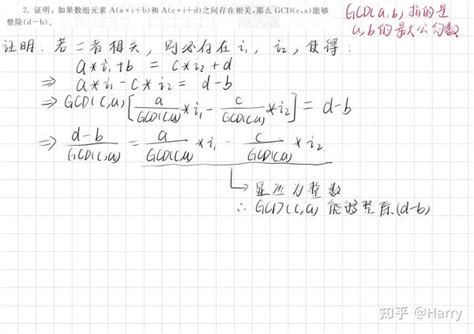 2. 证明:如果数组元素 A(a*i+b)和 A(c*i+d)之间存在相关,那么 GCD(c,a)能够
整除(d-b)。
GCD(a,b) 指的是
a,b的最大公约数
证明: 若二者相关, 则必存在 i₁, i₂, 使得:
a*i₁+b = c*i₂+d
⇒ a*i₁-c*i₂ = d-b
⇒ GCD(c,a)[a/GCD(c,a)*i₁ - c/GCD(c,a)*i₂] = d-b
⇒ d-b/GCD(c,a) = a/GCD(c,a)*i₁ - c/GCD(c,a)*i₂
显然为整数
∴ GCD(c,a) 能够整除(d-b)
知乎 @Harry